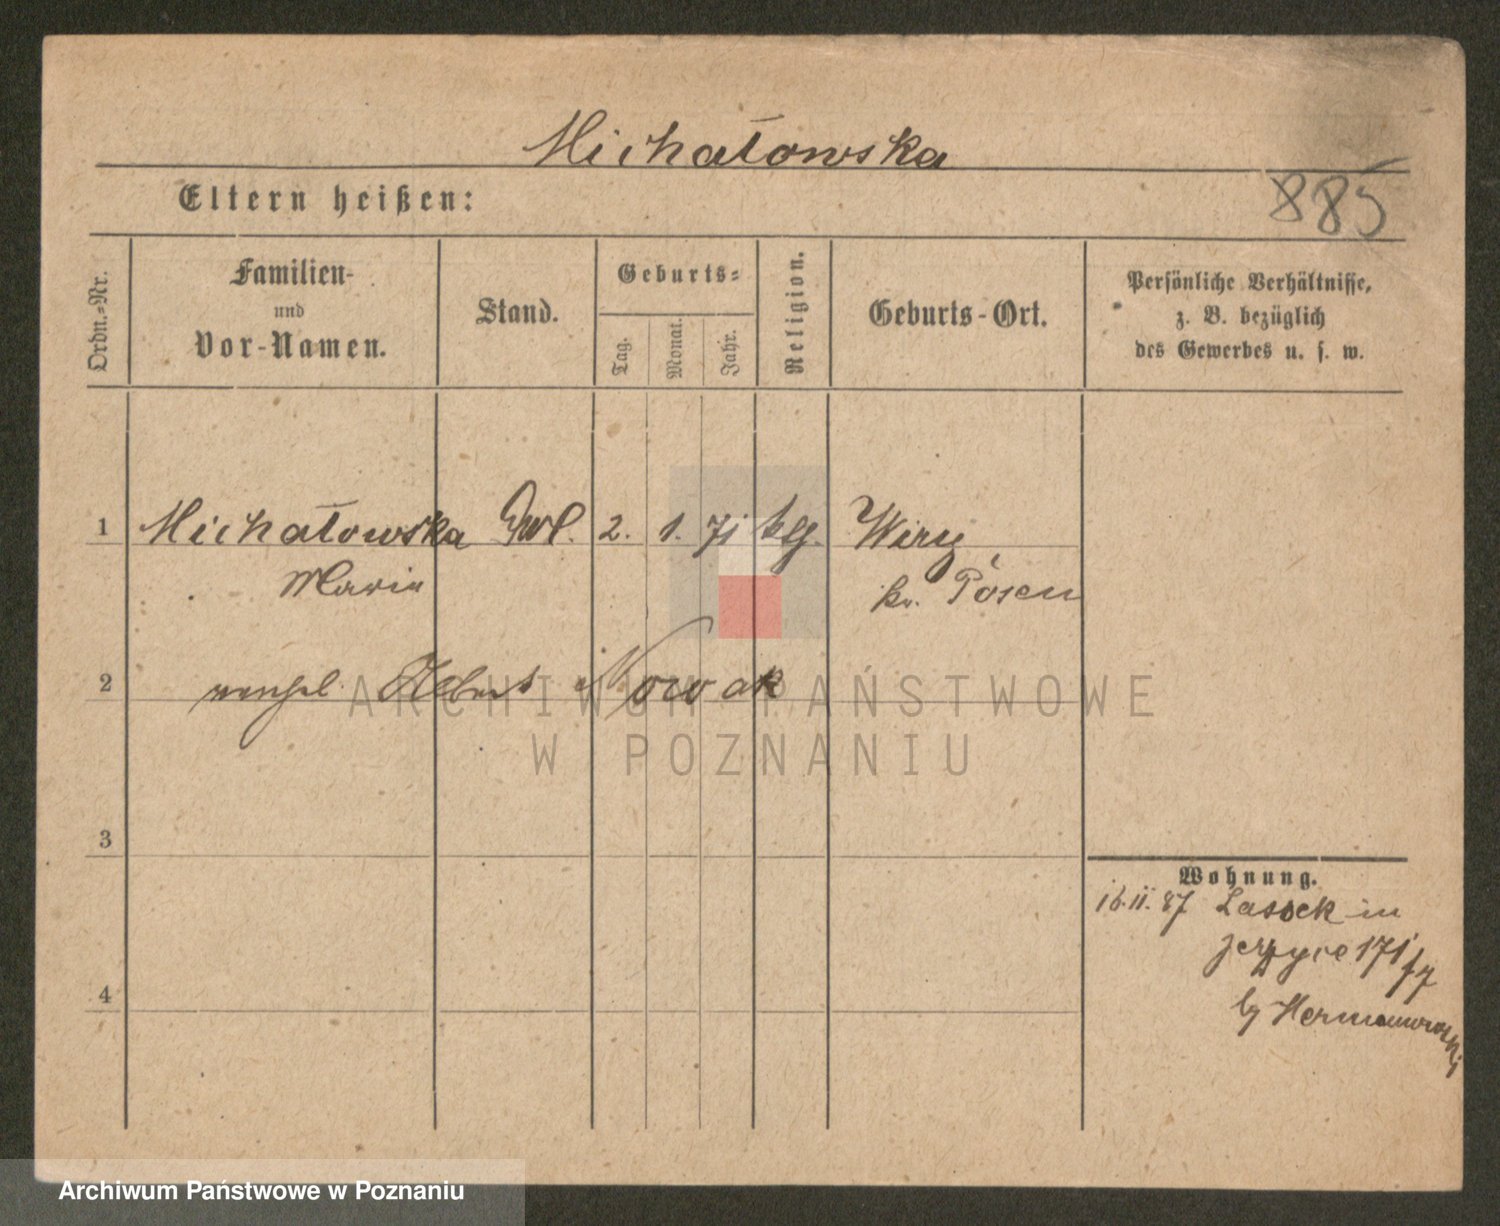 Michałowska
885
Eltern heißen:
Ordn.-Nr.
Familien-
und
Vor-Namen.
Stand.
Geburts-
Tag.
Monat.
Jahr.
Religion.
Geburts-Ort.
Persönliche Verhältnisse,
z. B. bezüglich
des Gewerbes u. s. w.
1 Michałowska 2. 1. 71 ktg. Wiry
Maria kr. Posen
2 Albert Nowak
ARCHIWUM PAŃSTWOWE
W POZNANIU
3
Wohnung.
16.11.87 Lassek in
Jerzyce 171/17
by Hermanowski
4
Archiwum Państwowe w Poznaniu